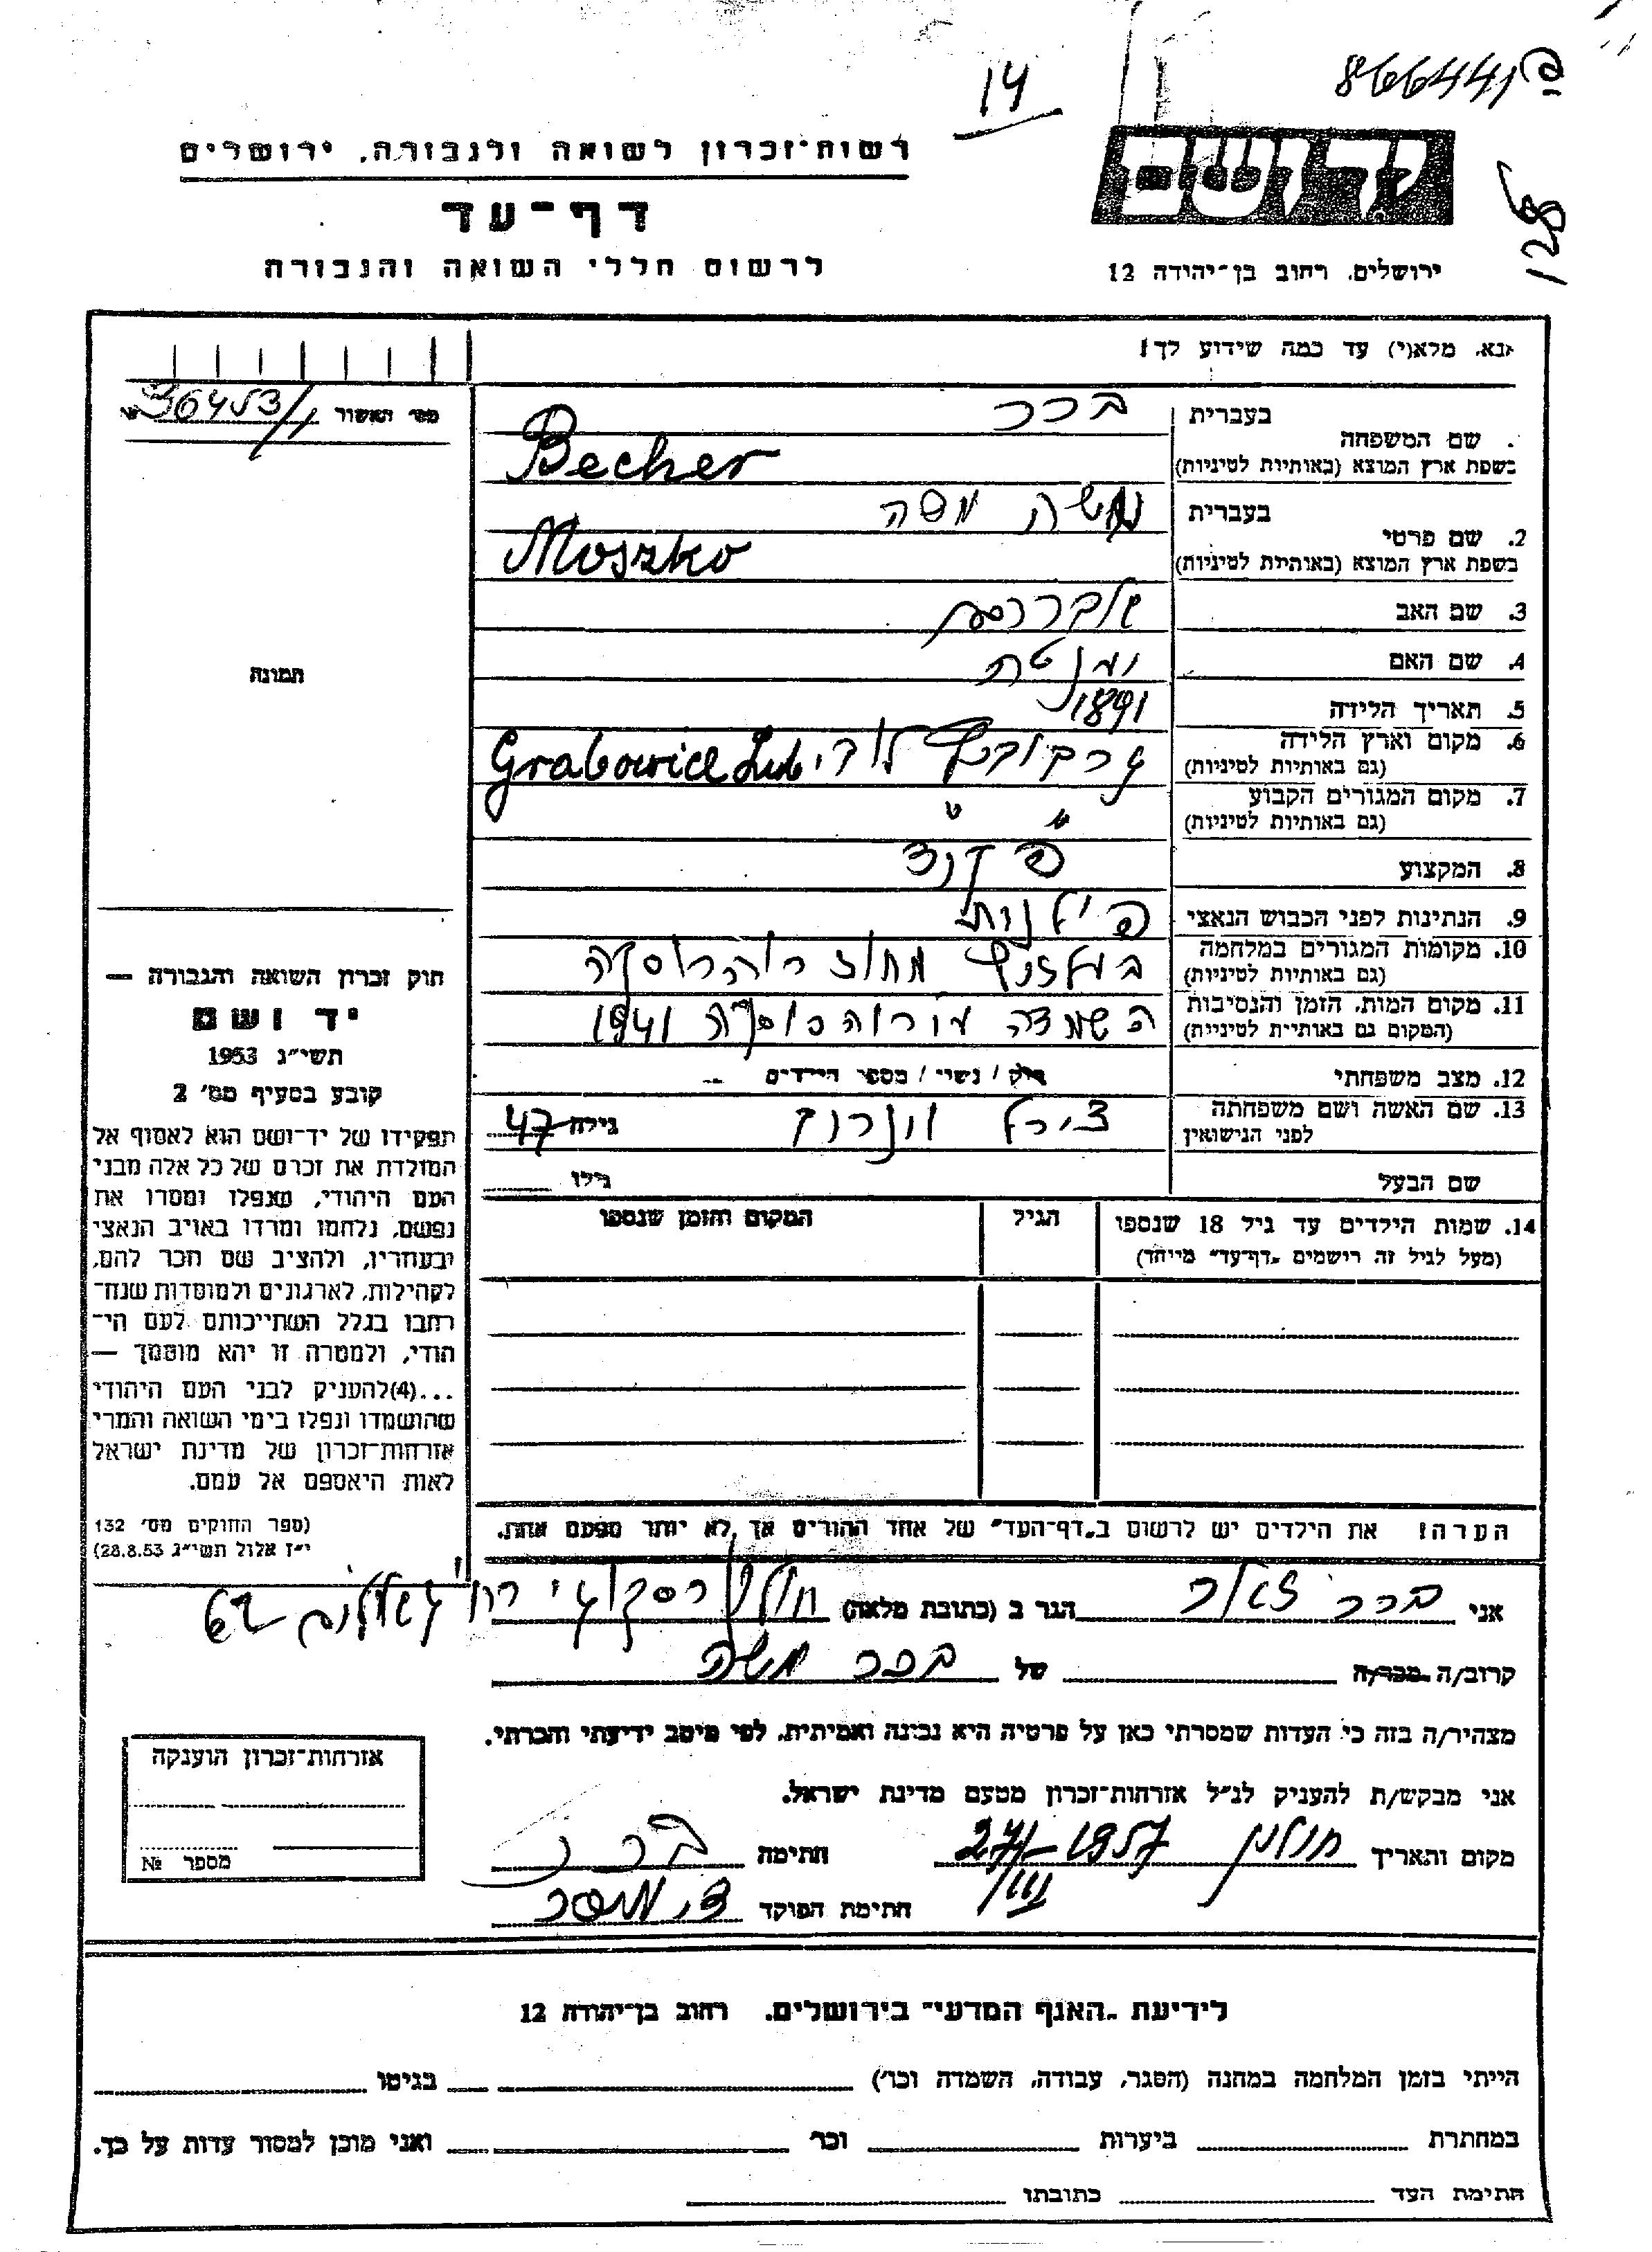 866441 פ
14
128
רשות־זכרון לשואה ולגבורה, ירושלים
יד ושם
דף־עד
לרשום חללי השואה והגבורה
ירושלים, רחוב בן־יהודה 12
אנא, מלא(י) עד כמה שידוע לך!
מס' האשור 36453/1
תמונה
בעברית בכר
1. שם המשפחה
בשפת ארץ המוצא (באותיות לטיניות) Becher
בעברית משה משה
2. שם פרטי
בשפת ארץ המוצא (באותיות לטיניות) Moszko
3. שם האב
4. שם האם
5. תאריך הלידה 1891
6. מקום וארץ הלידה
(גם באותיות לטיניות) Grabowice Lub
7. מקום המגורים הקבוע " "
(גם באותיות לטיניות)
8. המקצוע
9. הנתינות לפני הכבוש הנאצי
10. מקומות המגורים במלחמה מחוז
(גם באותיות לטיניות)
11. מקום המות, הזמן והנסיבות השמדה 1941
(המקום גם באותיות לטיניות)
12. מצב משפחתי רוק / נשוי / מספר הילדים
13. שם האשה ושם משפחתה גילה 47
לפני הנישואין
שם הבעל גילו
14. שמות הילדים עד גיל 18 שנספו הגיל המקום והזמן שנספו
(מעל לגיל זה רישמים „דף־עד" מייחד)
הערה! את הילדים יש לרשום ב„דף־העד" של אחד ההורים אך לא יותר מפעם אחת.
חוק זכרון השואה והגבורה —
יד ושם
תשי״ג 1953
קובע בסעיף מס' 2
תפקידו של יד־ושם הוא לאסוף אל
המולדת את זכרם של כל אלה מבני
העם היהודי, שנפלו ומסרו את
נפשם, נלחמו ומרדו באויב הנאצי
ובעוזריו, ולהציב שם וזכר להם,
לקהילות, לארגונים ולמוסדות שנח־
רבו בגלל השתייכותם לעם הי־
הודי, ולמטרה זו יהא מוסמך —
...(4) להעניק לבני העם היהודי
שהושמדו ונפלו בימי השואה והמרי
אזרחות־זכרון של מדינת ישראל
לאות היאספם אל עמם.
(ספר החוקים מס' 132
י״ז אלול תשי״ג 28.8.53)
אני בכר הגר ב (כתובת מלאה) 62
קרוב/ה מכר/ה של בכר משה
מצהיר/ה בזה כי העדות שמסרתי כאן על פרטיה היא נכונה ואמיתית, לפי מיטב ידיעתי והכרתי.
אני מבקש/ת להעניק לנ״ל אזרחות־זכרון מטעם מדינת ישראל.
מקום ותאריך חולון 1957 חתימה
חתימת הפוקד
אזרחות־זכרון הוענקה
מספר №
לידיעת „האגף המדעי" בירושלים, רחוב בן־יהודה 12
הייתי בזמן המלחמה במחנה (הסגר, עבודה, השמדה וכו') בגיטו
במחתרת ביערות וכו' ואני מוכן למסור עדות על כך.
חתימת העד כתובתו